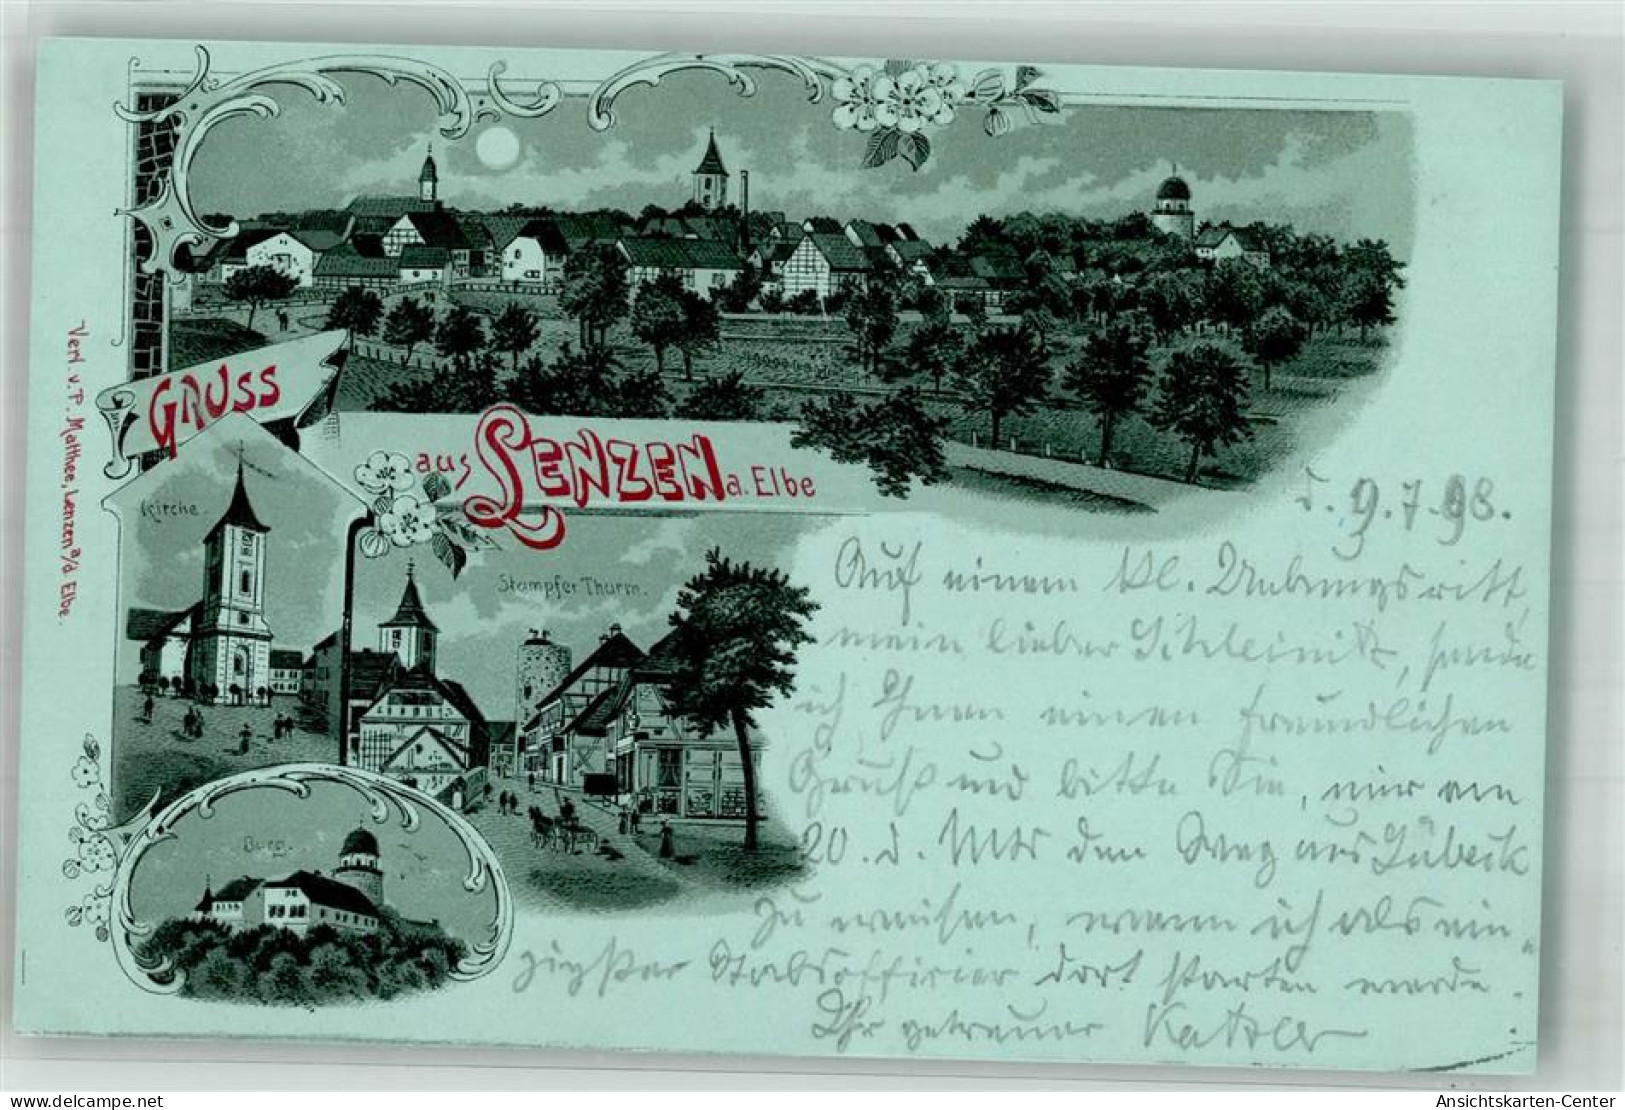 GRUSS
aus LENZEN a. Elbe
Verl. v. P. Matthee, Lenzen a/d Elbe.
Kirche.
Stumpfer Thurm.
Burg.
d. 9.7.98.
Auf einem kl. Übungsritt,
mein lieber Schleinitz, sende
ich Ihnen einen freundlichen
Gruß und bitte Sie, mir am
20. d. Mts den Weg aus Lübeck
zu weisen, wenn ich als ein-
zigster Stabsoffizier dort starten werde.
Ihr getreuer
delcampe.net
Ansichtskarten-Center